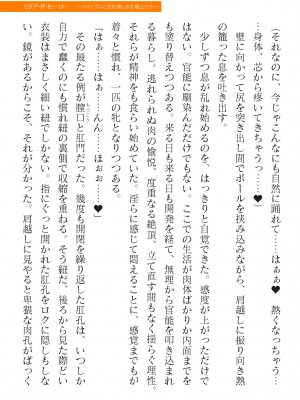 ――それなのに、今じゃこんなにも自然に踊れて……はぁぁ♥　熱くなっちゃう……
…身体、芯から疼いてきちゃうっ……♥
壁に向かって尻を突き出し間でポールを挟み込みながら、肩越しに振り向き熱
の籠った息を吐き出す。
少しずつ息が乱れ始めるのを、はっきりと自覚できた。感度が上がっただけで
はない。官能に馴染んだだけでもない。ここでの生活が肉体ばかりか内面までを
も塗り替えつつある。来る日も来る日も開発を経て、無理から官能を叩き込まれ
る暮らし。逃れられぬ肉の愉悦、度重なる絶頂、立て直す間もなく揺らぐ理性。
それらが精神をも食らい始めていた。淫らに感じて悶えることに、感覚までもが
着々と慣れ、一匹の牝となりつつある。
「はぁ……はぁ……んん、ほぉっ……♥」
その最たる例が膣口と肛門だった。幾度も開閉を繰り返した肛孔は、いつしか
自力で蠢くのにも慣れ紐の裏側で収縮を重ねる。そう紐だ、後ろから見た際どい
衣装はまさしく細い紐でしかない。指にぐっと開かれた肛孔をロクに隠しもしな
い。鏡があるからこそ、それが分かった。肩越しに見やると卑猥な肉孔がぱっく